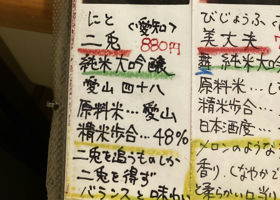 にと 〈愛知〉
二兎 880円
純米大吟醸
愛山 四十八
原料米…愛山
精米歩合…48%
二兎を追うものしか
二兎を得ず
バランスと味わい
びじょうふ
美丈夫
純米大
原料米…
精米歩合…
日本酒度…
メロンのような
香り、しなやかで
柔らかい口当り